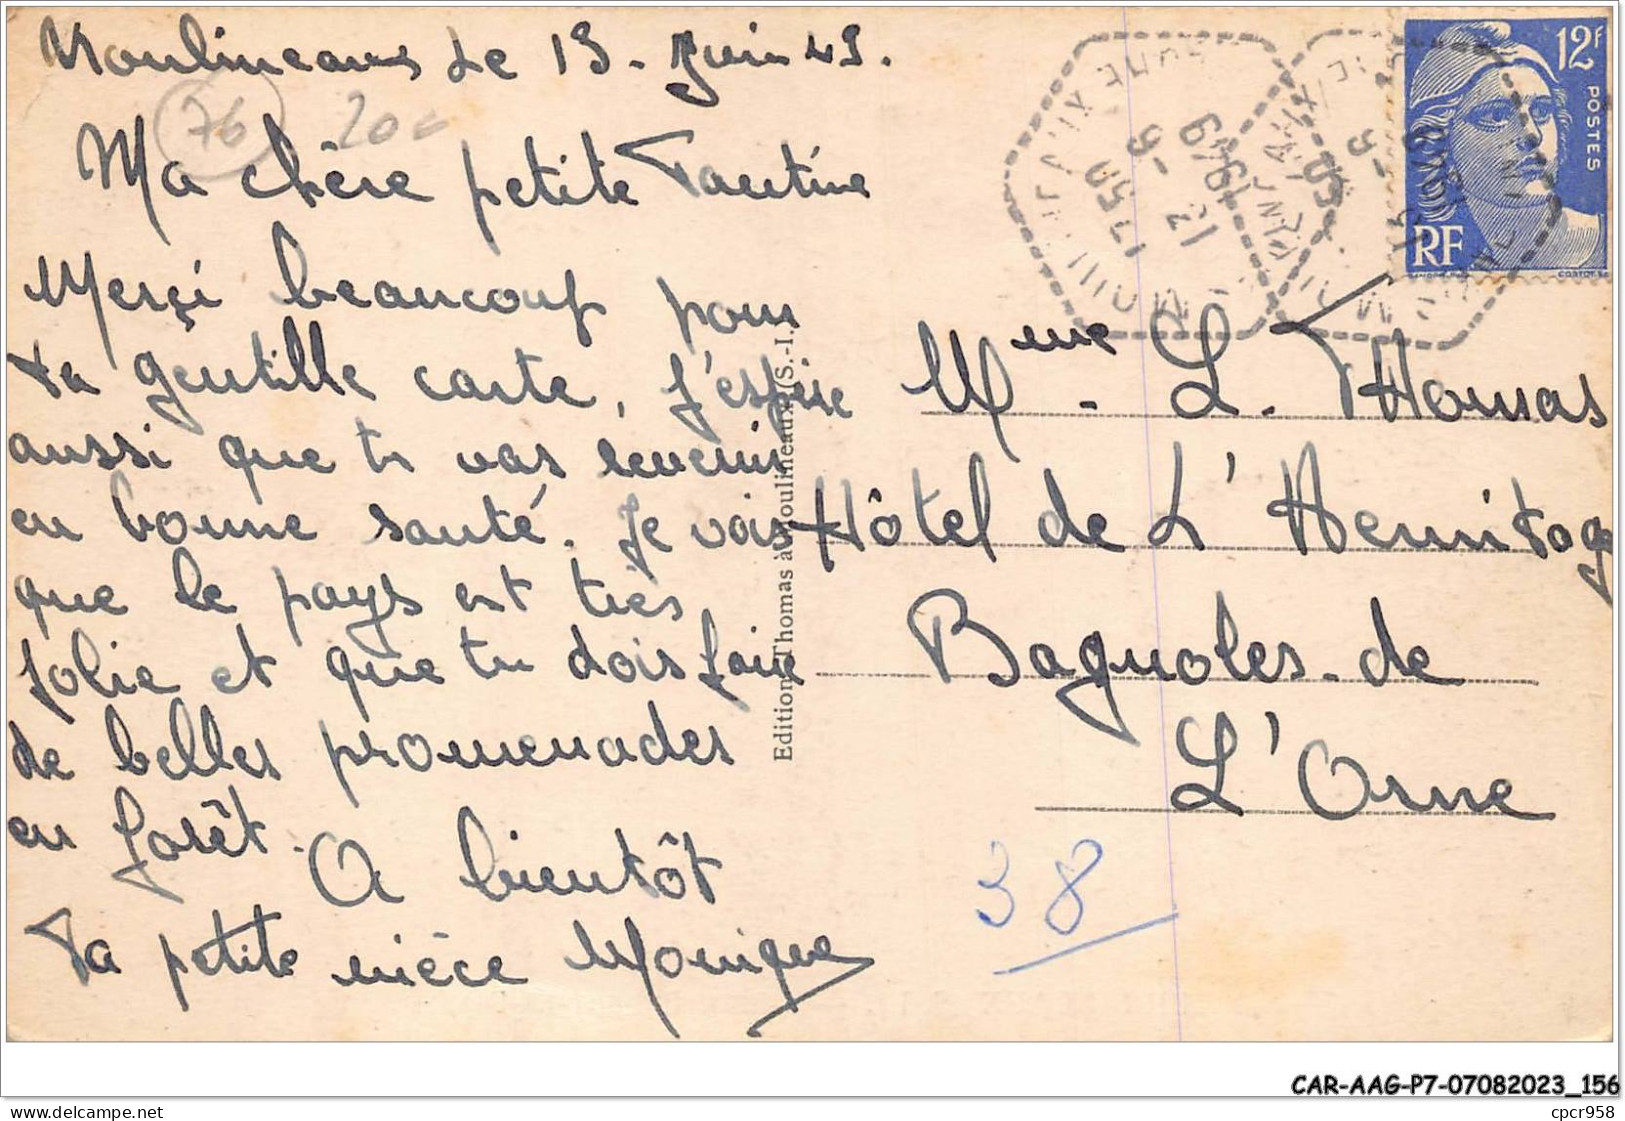 Moulineaux Le 13 - Juin 49.
76
20
Ma chère petite Tantine
Merçi beaucoup pour
ta gentille carte, j'espère
aussi que tu vas revenir
en bonne santé. Je vois
que le pays est très
jolie et que tu dois faire
de belles promenades
en forêt.
A bientôt
Ta petite nièce Monique
Edition Thomas à Moulineaux (S.-I.)
12F
POSTES
RF
1750
12 - 6
1949
Mme - L. Thomas
Hôtel de L' Hermitage
Bagnoles-de
L'Orne
38
CAR-AAG-P7-07082023_156
cpcr958